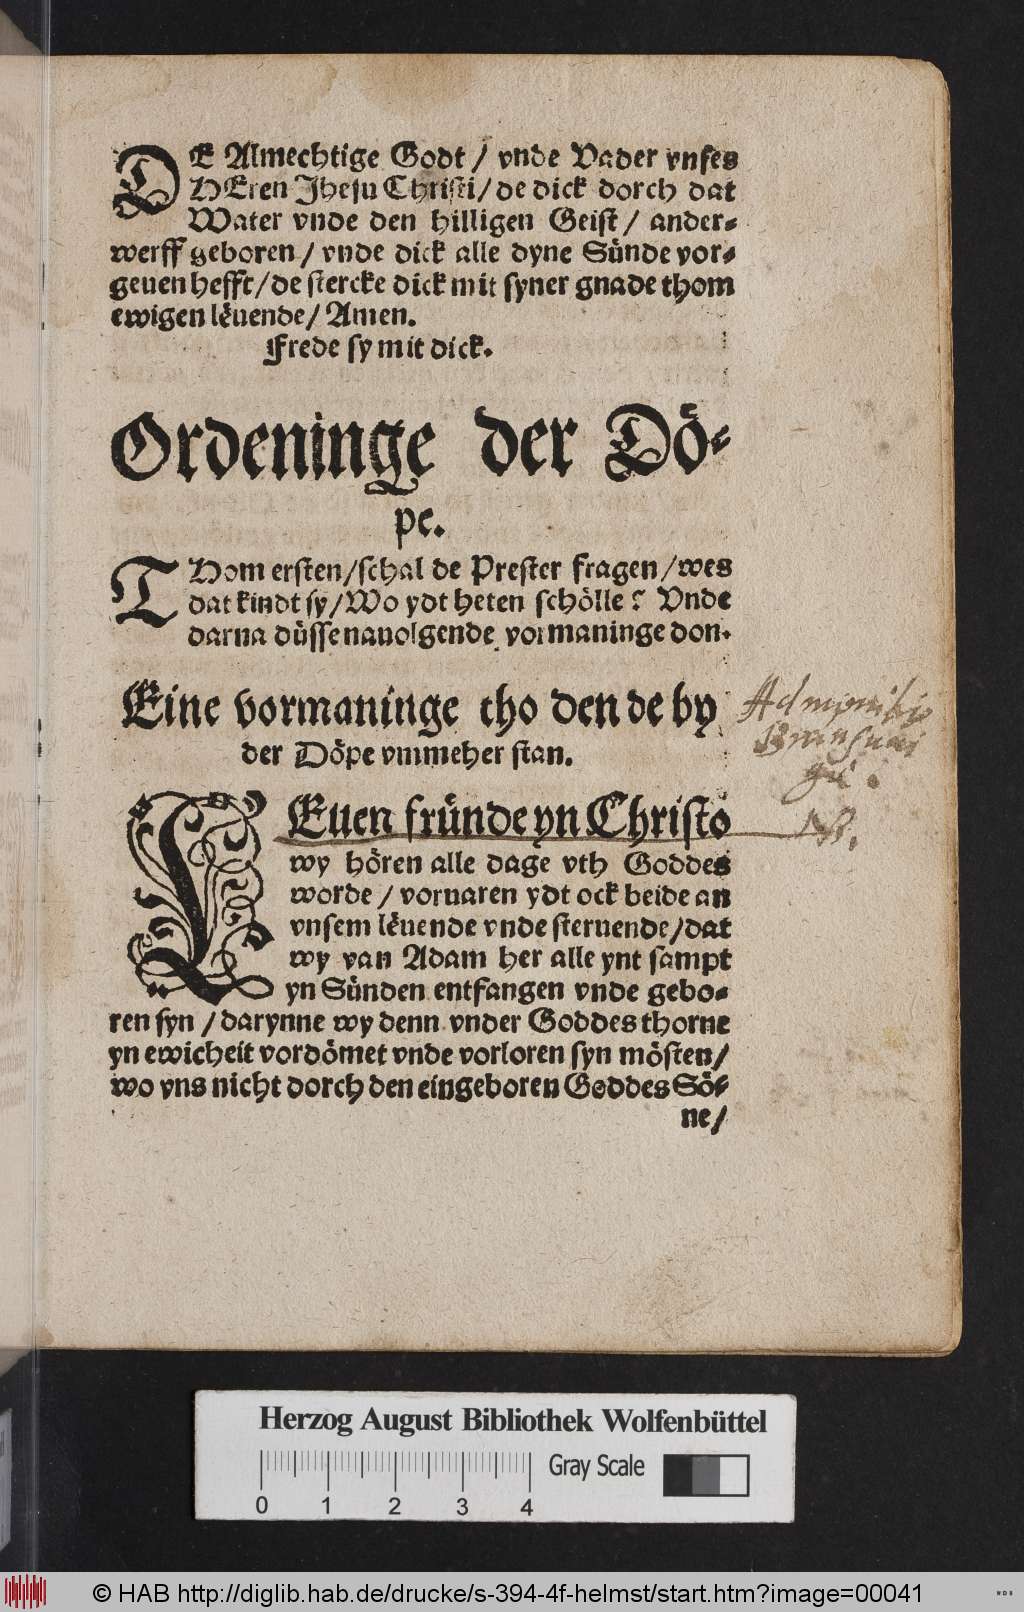 DE Almechtige Godt / vnde Vader vnses
HEren Jhesu Christi / de dick dorch dat
Water vnde den hilligen Geist / ander⸗
werff geboren / vnde dick alle dyne Sünde vor⸗
geuen hefft / de stercke dick mit syner gnade thom
ewigen lëuende / Amen.
Frede sy mit dick.
Ordeninge der Dö⸗
pe.
THom ersten / schal de Prester fragen / wes
dat kindt sy / Wo ydt heten schölle? Vnde
darna düsse nauolgende vormaninge don.
Eine vormaninge tho den de by
der Döpe vmmeher stan.
LEuen fründe yn Christo
wy hören alle dage vth Goddes
worde / voruaren ydt ock beide an
vnsem lëuende vnde steruende / dat
wy van Adam her alle ynt sampt
yn Sünden entfangen vnde gebo⸗
ren syn / darynne wy denn vnder Goddes thorne
yn ewicheit vordömet vnde vorloren syn mösten /
wo vns nicht dorch den eingeboren Goddes Sö⸗
ne /
Admonitio
NB.
Herzog August Bibliothek Wolfenbüttel
0 1 2 3 4 Gray Scale
© HAB http://diglib.hab.de/drucke/s-394-4f-helmst/start.htm?image=00041